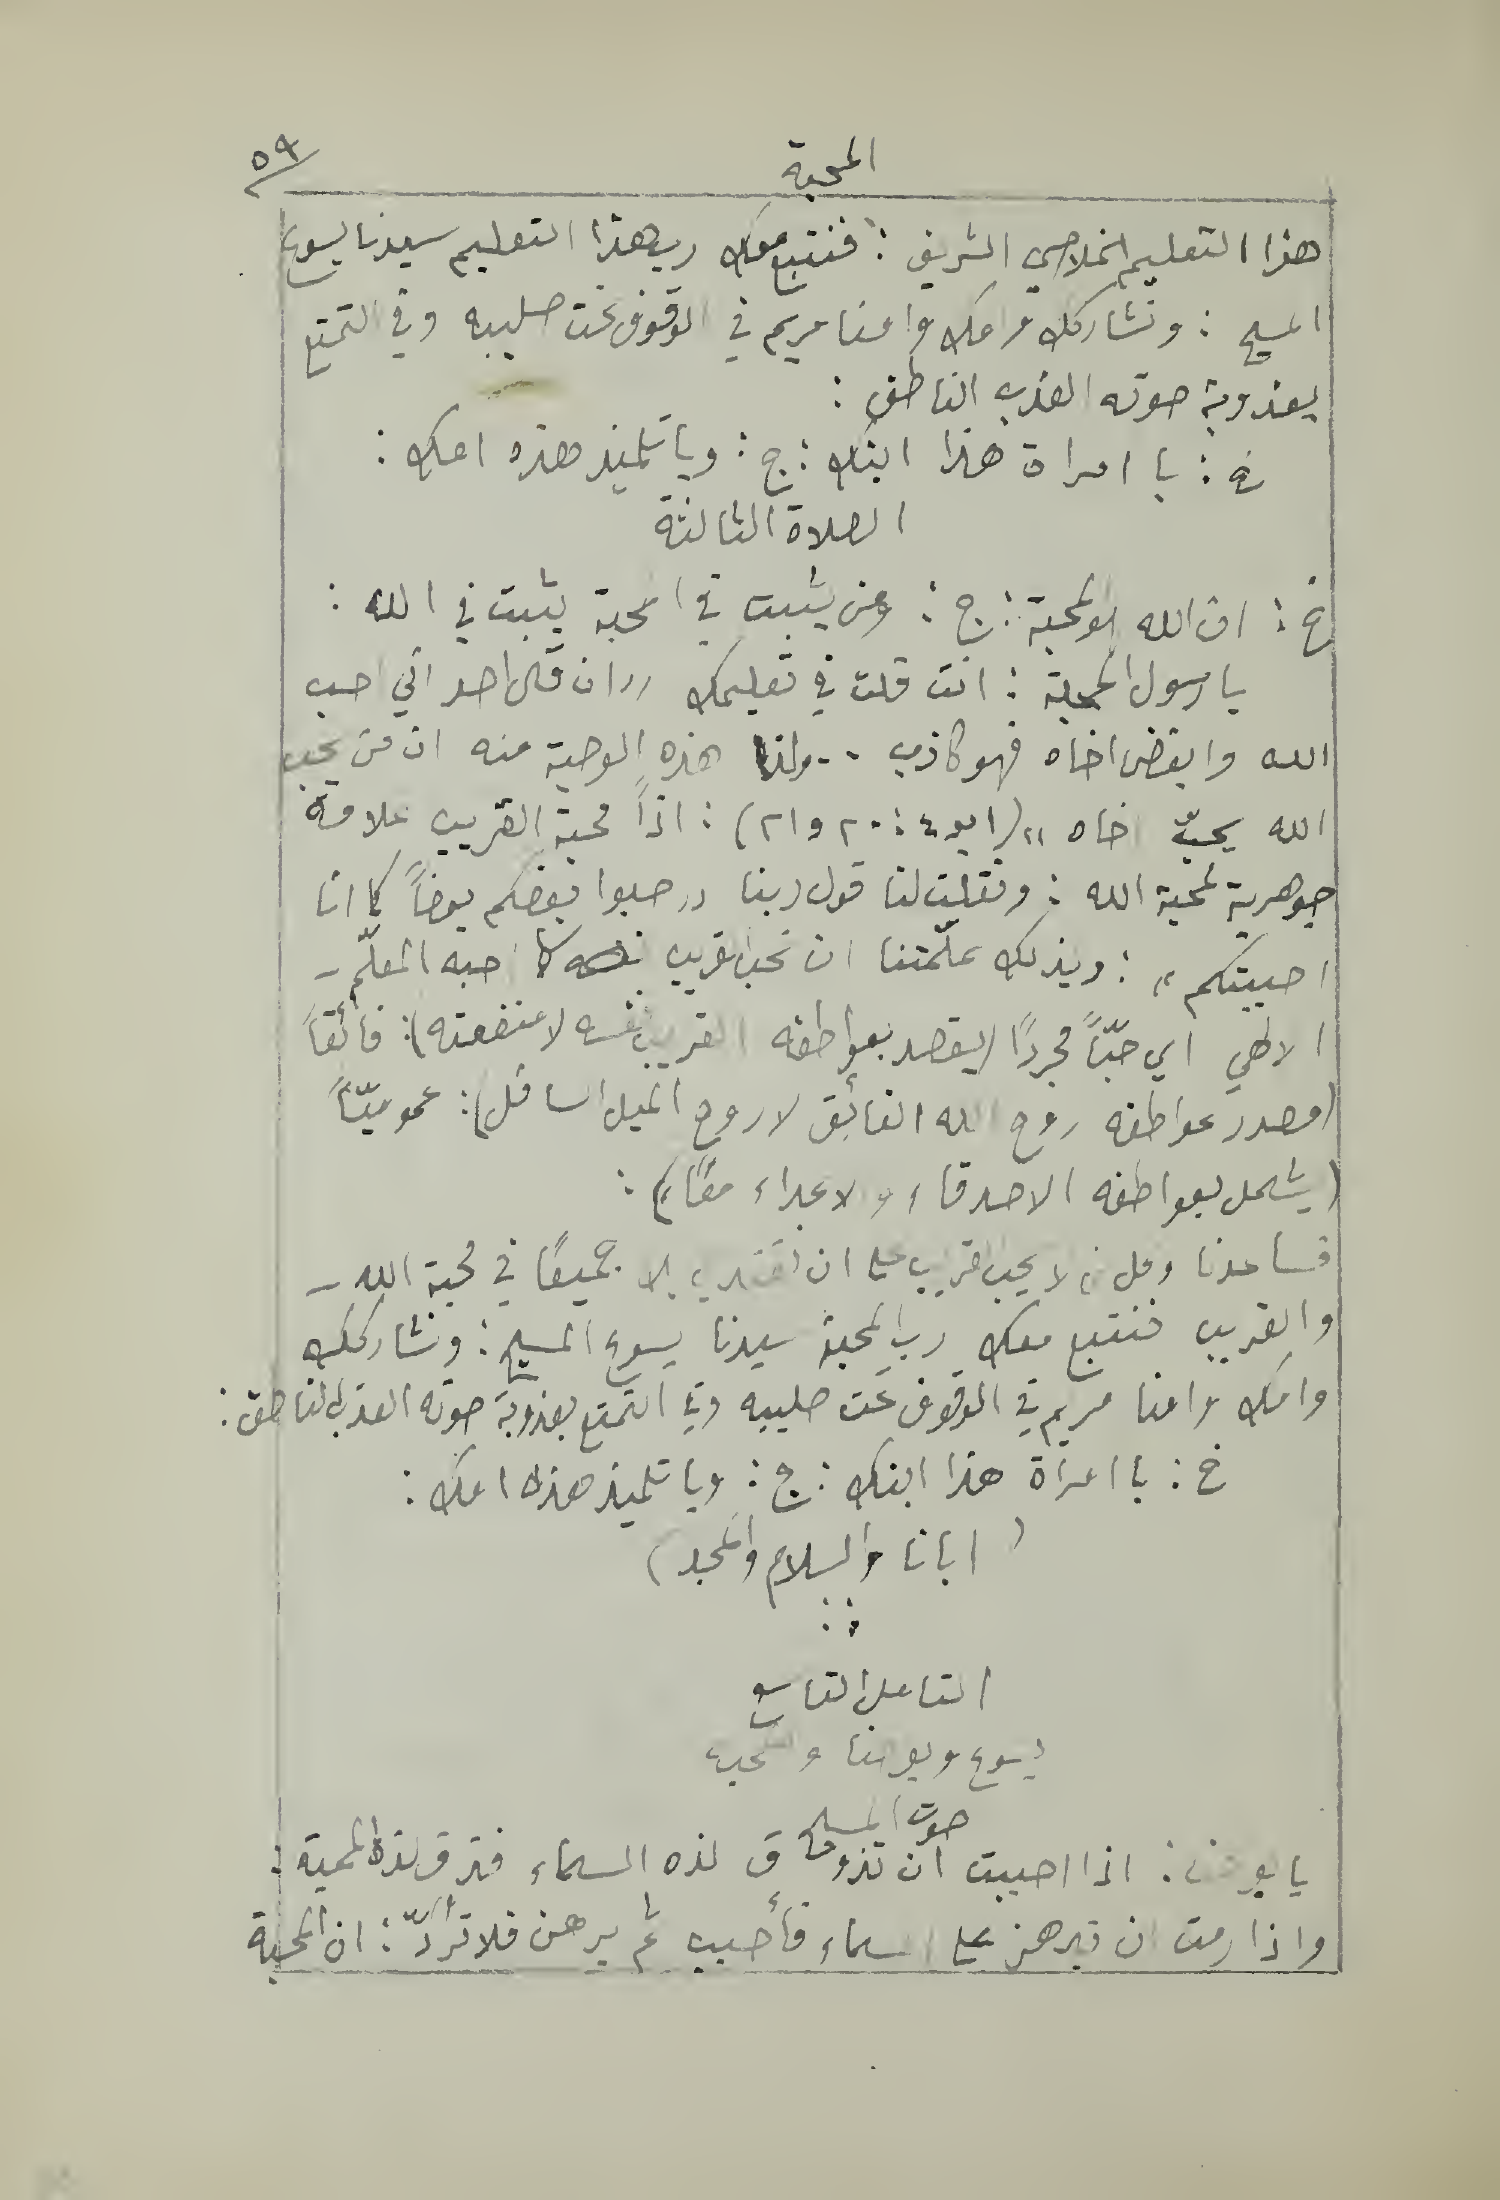 المحبة
٥٩
هذا التعليم الخلاصي الشريف : فنتبع معك رب هذا التعليم سيدنا يسوع
المسيح : ونشاركك وامك وامنا مريم في الوقوف تحت صليبه وفي التمتع
بعذوبة صوته العذب الناطق :
خ : يا امراة هذا ابنك : ج : ويا تلميذ هذه امك :
الصلاة الثالثة
خ : ان الله هو المحبة : ج : ومن يثبت في المحبة يثبت في الله :
يا رسول المحبة : انت قلت في تعليمك «ان قال احد اني احب
الله وابغض اخاه فهو كاذب ٠٠ ولنا هذه الوصية منه ان من يحب
الله يحبّ اخاه» (١يو ٤ : ٢٠ و٢١) : اذاً محبة القريب علامة
جوهرية لمحبة الله : ونقلت لنا قول ربنا «حبوا بعضكم بعضاً كما انا
احببتكم» : وبذلك علّمتنا ان نحب القريب كما احبه المعلّم –
الالهي اي حبّاً مجردًا (يقصد بعواطفه القريب نفسه لا منفعته) : فائقاً
(مصدر عواطفه روح الله الفائق لا روح الميل السافل) : عموميّاً
(يشمل بعواطفه الاصدقاء والاعداء معًا) :
فساعدنا وكل من لا يحب القريب على ان جميعًا في محبة الله –
والقريب فنتبع معك رب المحبة سيدنا يسوع المسيح : ونشاركك
وامك وامنا مريم في الوقوف تحت صليبه وفي التمتع بعذوبة صوته العذب الناطق :
خ : يا امراة هذا ابنك : ج : ويا تلميذ هذه امك :
( ابانا والسلام والمجد )
التامل التاسع
يسوع ويوحنا والمحبة
صوت المسيح
يا يوحنا : اذا احببت ان تذوق لذه السماء فذق لذة المحبة :
واذا رمت ان تبرهن على السماء فأحبب ثم برهن فلا تُردّ : ان المحبة